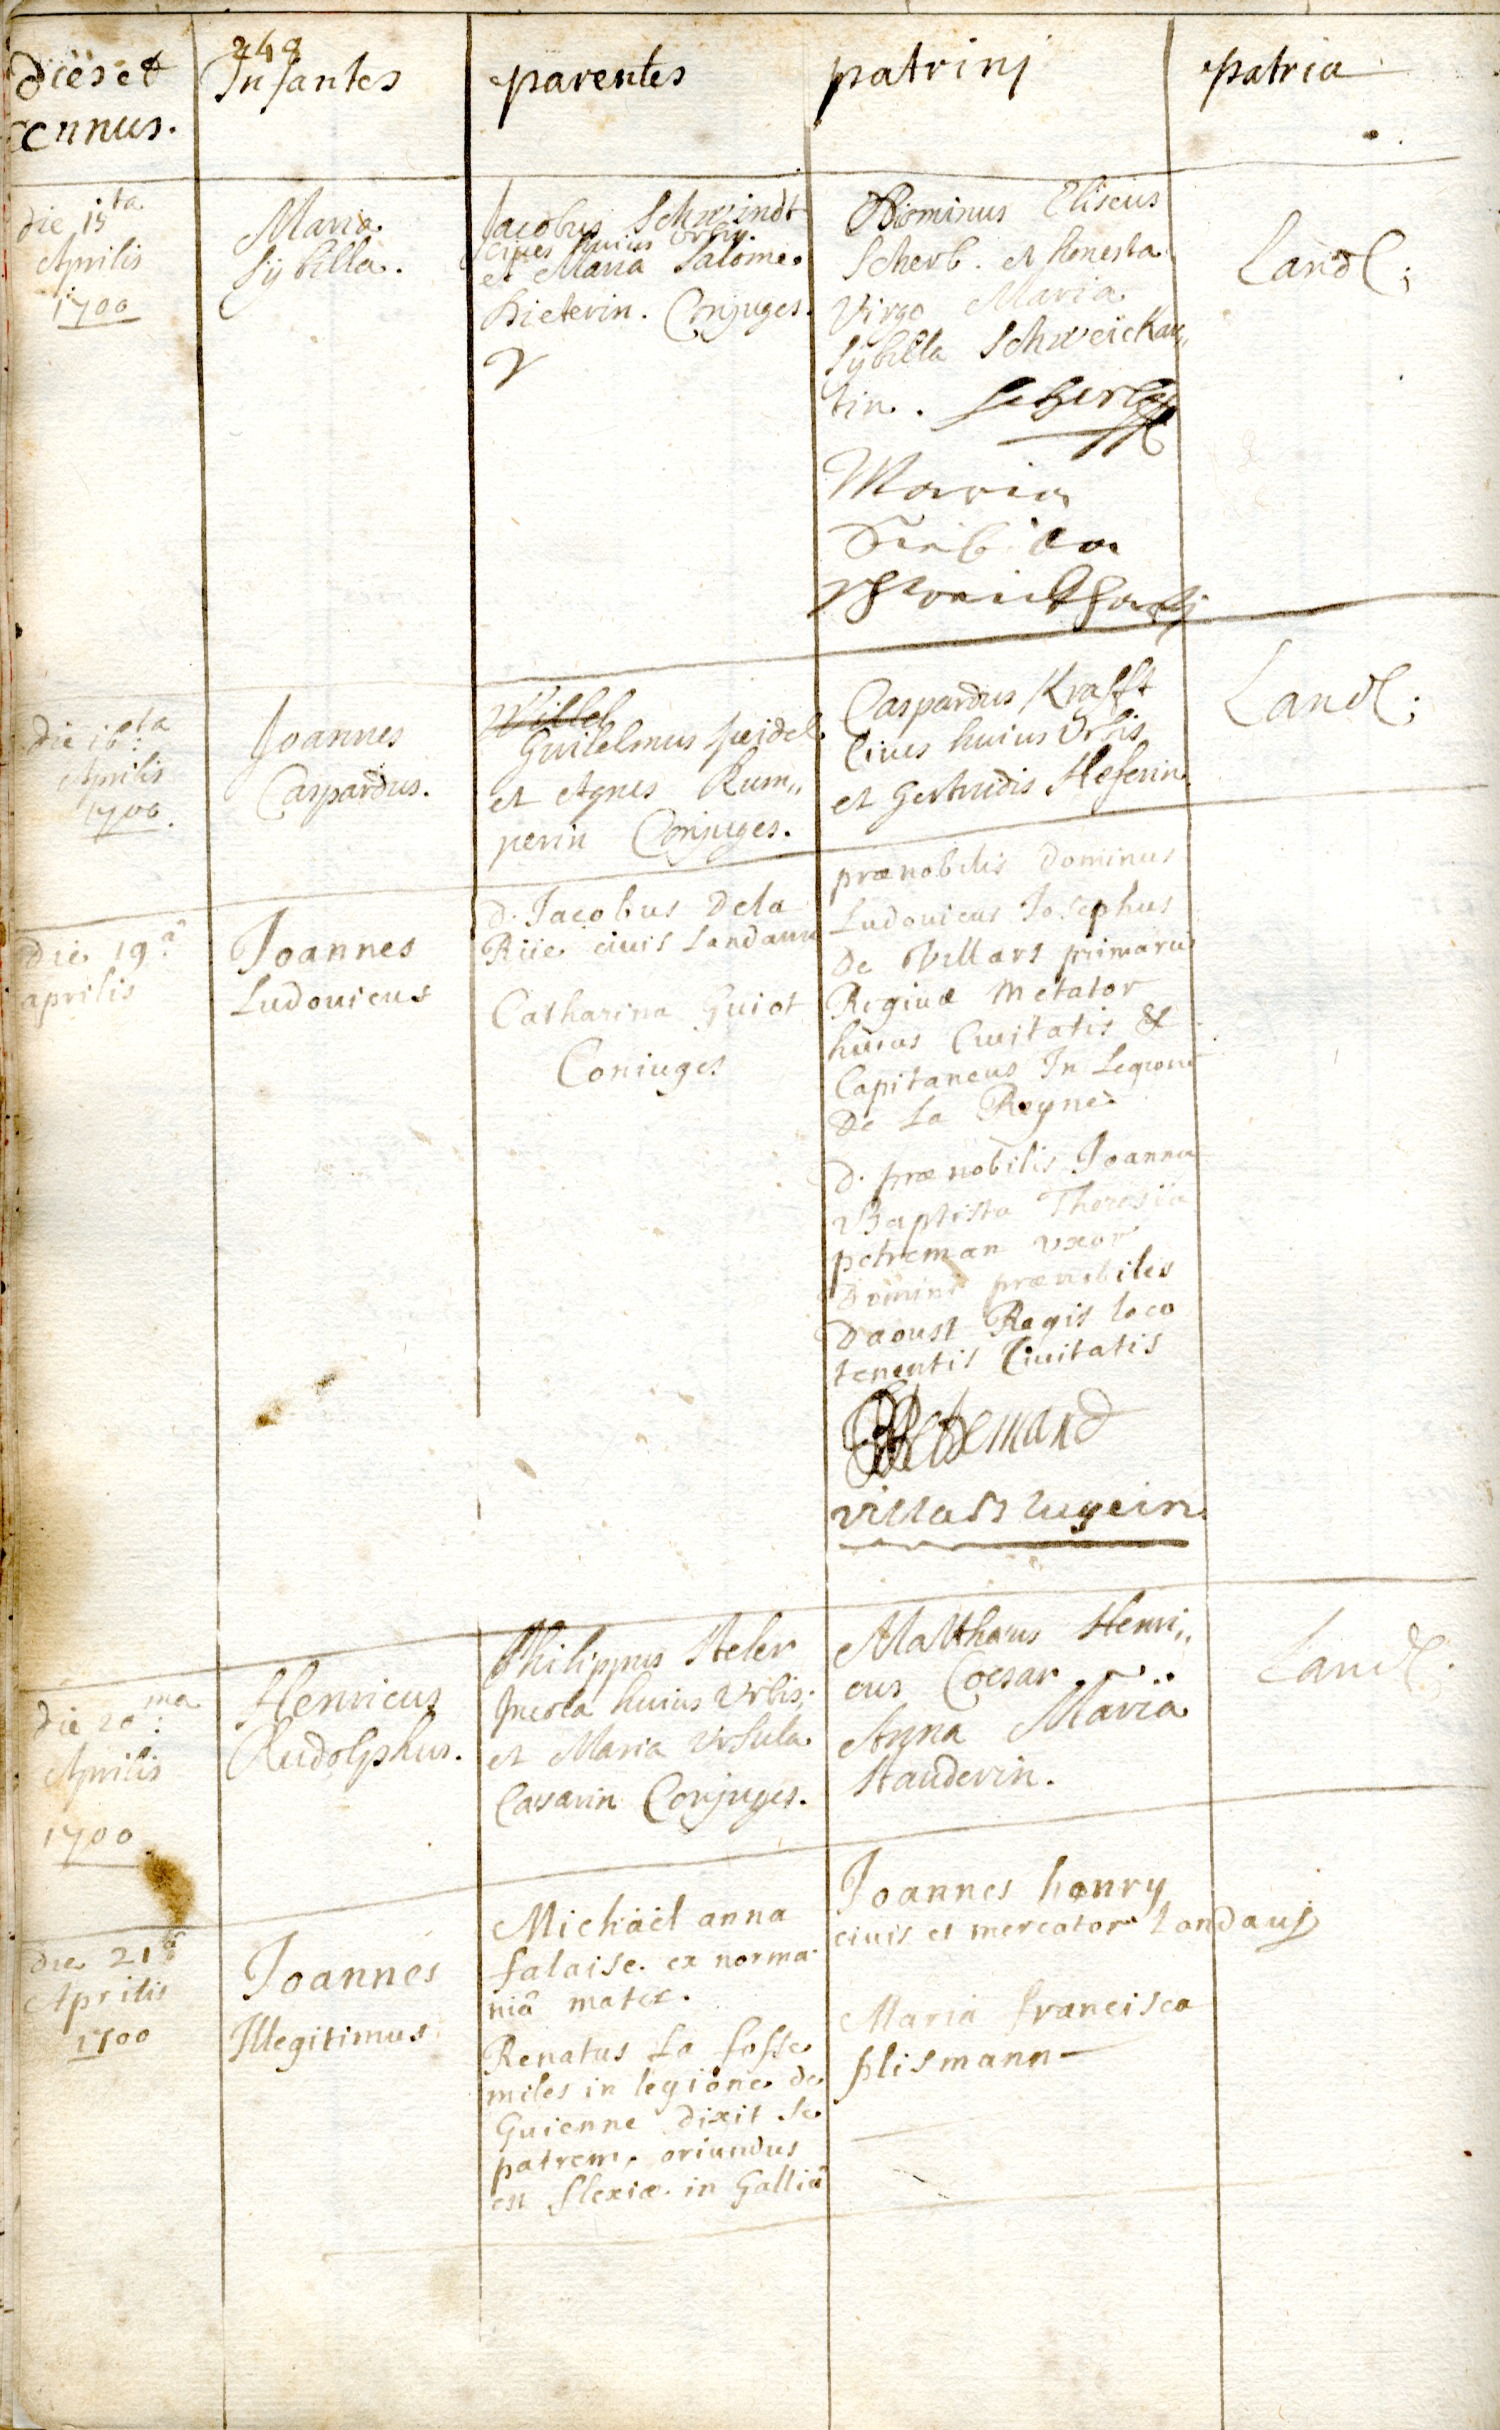 248
dies et
annus.
Infantes
parentes
patrinj
patria
die 15ta
Aprilis
1700
Maria
Sÿbilla.
Jacobus Schwindt
Cives huius Urbis.
et Maria Salome
Dieterin. Conjuges.
Dominus Eliseus
Scherb. et honesta
Virgo Maria
Sÿbilla Schweickar„
tin. Scherb
Maria
Landl;
die 16ta
Aprilis
1700.
Joannes
Caspardus.
Guilelmus Speidel
et Agnes Rum„
perin Conjuges.
Caspardus Krafft
Cives huius Urbis
et Gertrudis Heferin
Landl;
die 19â
aprilis
Joannes
Ludouicus
d. Jacobus Dela
Rüe ciuis Landauii
Catharina Guiot
Coniuges
prænobilis dominus
Ludouicus Josephus
De Villars primarius
Reginæ Metator
huius Ciuitatis &
Capitaneus In Legione
De La Reyne
d. prænobilis Joanna
Baptista Theresia
petreman uxor
Domini prænobilis
Daoust Regis loco
tenentis Ciuitatis
Petremand
villars lugein
die 20ma:
Aprilis
1700
Henricus
Rudolphus.
Philippus Steler
Incola huius Urbis;
et Maria Ursula
Cæsarin Conjuges.
Matthæus Henri„
cus Cœsar
Anna Maria
Stauderin.
Landl.
die 21â
Aprilis
1700
Joannes
Illegitimus
Michaël anna
falaise ex norma
niâ mater.
Renatus La fosse
miles in legione de
Guienne dixit se
patrem, oriundus
est flexiæ in Galliâ
Joannes henry
ciuis et mercator Landauj
Maria francisca
plismann